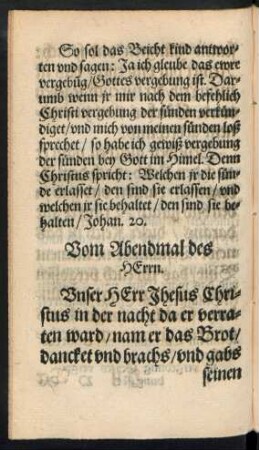 So sol das Beicht kind antwor-
ten vnd sagen: Ja ich gleube das ewre
vergebũg/Gottes vergebung ist. Dar-
umb wenn jr mir nach dem befehlich
Christi vergebung der sünden verkün-
diget/vnd mich von meinen sünden loß
sprechet/so habe ich gewiß vergebung
der sünden bey Gott im Himel. Denn
Christus spricht: Welchen jr die sün-
de erlasset/den sind sie erlassen/vnd
welchen jr sie behaltet/den sind sie be-
halten/Johan. 20.
Vom Abendmal des
HErrn.
Vnser HErr Jhesus Chri-
stus in der nacht da er verra-
ten ward/nam er das Brot/
dancket vnd brachs/vnd gabs
seinen